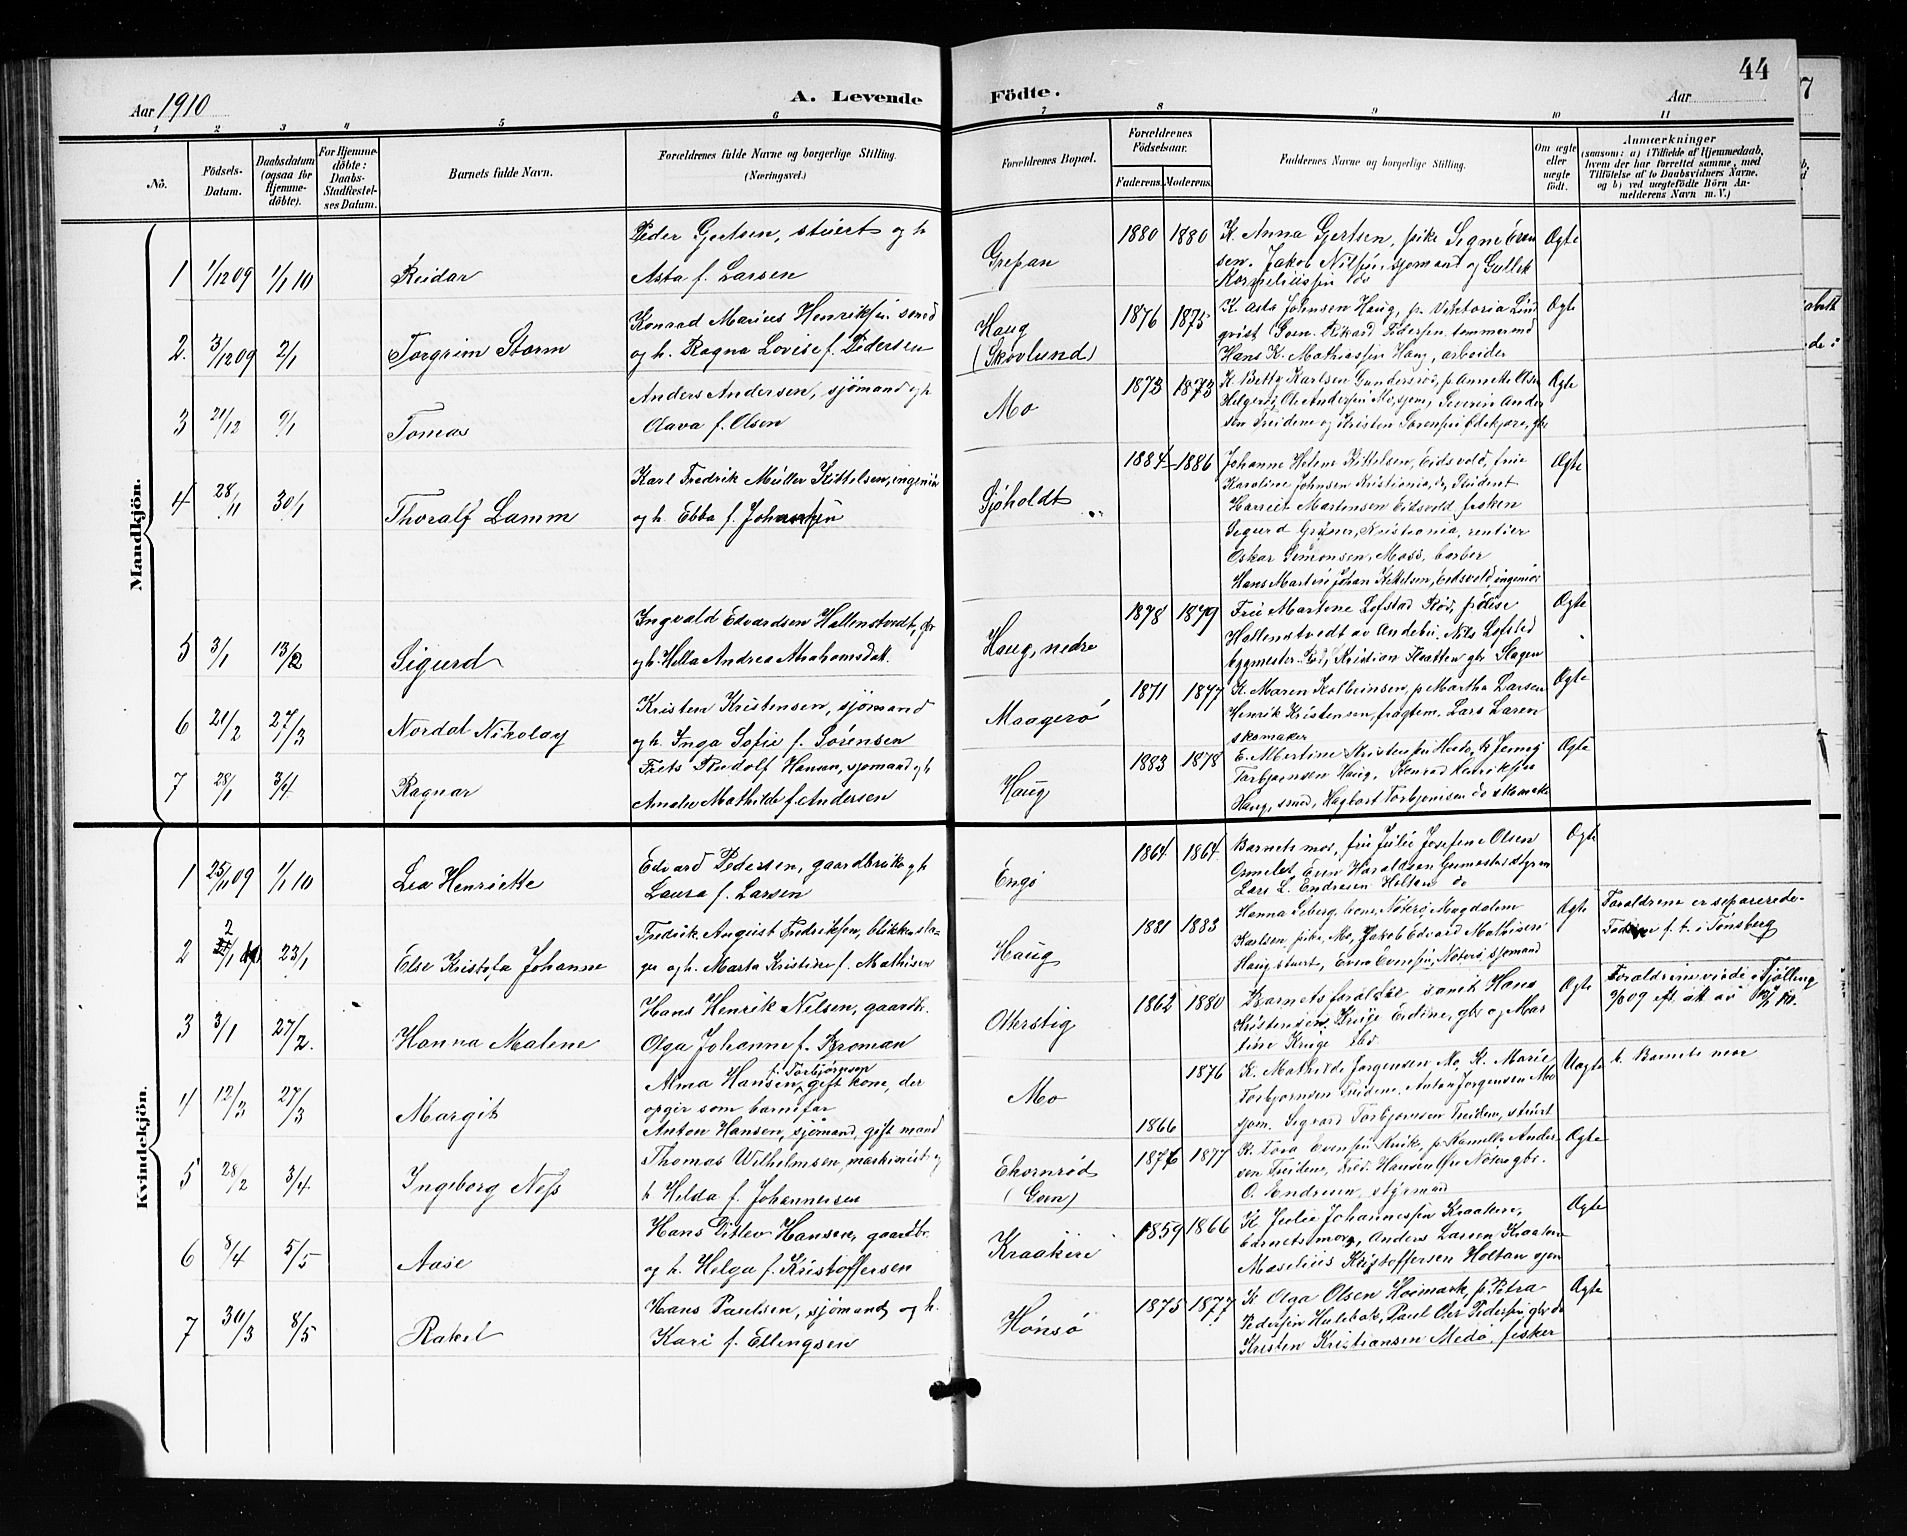 44
Aar 1910
A. Levende Födte.
Aar
1 2 3 4 5 6 7 8 9 10 11
No.
Födsels-Datum.
Daabsdatum (ogsaa for Hjemme-döbte).
For Hjemme-döbte: Daabs-Stadfæstel-ses Datum.
Barnets fulde Navn.
Forældrenes fulde Navne og borgerlige Stilling. (Næringsvei.)
Forældrenes Bopæl.
Forældrenes Födselsaar.
Faderens. Moderens.
Faddernes Navne og borgerlige Stilling.
Om ægte eller uægte födt.
Anmærkninger
(saasom: a) i Tilfælde af Hjemmedaab, hvem der har forrettet samme, med Tilföielse af to Daabsvidners Navne, og b) ved uægtefödte Börn Anmelderens Navn m. V.)
Mandkjön.
1 1/12 09 1/1 10 Reidar
Peder Gjertsen, stuert og h
Asta f. Larsen
Grepan 1880 1880
K. Anna Gjertsen, pike Signe Even
sen. Jakob Nilsen, sjømand og Gullik
Korneliussen do
Ægte
2. 3/12 09 2/1 Torgrim Storm
Konrad Marius Henriksen smed
og h. Ragna Lovise f. Pedersen
Haug
(Skovlund)
1876 1875
K. Asta Johnsen Haug, p. Viktoria Lind
qvist Goen. Rikard Pedersen tømmermd
Hans K. Mathiassen Haug, arbeider
Ægte
3 21/12 9/1 Tomas
Anders Andersen, sjömand og h
Olava f. Olsen
Mo 1873 1873
K. Betty Karlsen Gundersrød, p Annette Olsen
Helgerød, Ole Andersen Mo, sjøm, Severin Ander
sen Treidene og Kristen Sørensen
Ægte
4 28/11 30/1 Thoralf Lamm
Karl Fredrik Müller Kittelsen, ingeniør
og h. Ebba f. Johnsen
Sjöholdt 1884 1886
Johanne Helene Kittelsen, Eidsvold, frue
Karoline Johnsen Kristiania, do Student
Harriet Martensen Eidsvold frøken
Sigurd Grüner, Kristiania, rentier
Oskar Simonsen, Moss, barber
Hans Martin Johan Kittelsen, Eidsvold, ingeniør
Ægte
5 3/1 13/2 Sigurd
Ingvald Edvardsen Hallenstvedt, gbr
og h. Hella Andrea Abrahamsdatt.
Haug, nedre 1878 1879
Frue Martine Lofstad Rød, p Elise
Hallenstvedt av Andebu. Nils Lofstad
bygmester Rød, Kristian Skatten gbr Slagen
Ægte
6 21/2 27/3 Nordal Nikolay
Kristen Kristensen, sjømand
og h. Inga Sofie f. Sörensen
Maagerö 1871 1877
K. Maren Kolbeinsen, p Martha Larsen
Henrik Kristensen, fragtem. Lars Larsen
skomaker
Ægte
7 28/1 3/4 Ragnar
Frets Rudolf Hansen, sjømand og h
Amalie Mathilde f. Andersen
Haug 1883 1878
E. Albertine Kristensen Hede, p Jenny
Torbjørnsen Haug, Konrad Henriksen
Haug, smed, Hagbart Torbjørnsen do skomaker
Ægte
Kvindekjön.
1 25/11 09 1/1 10 Lea Henriette
Edvard Pedersen, gaardbruker og h
Laura f. Larsen
Engö 1864 1864
Barnets mor, frue Julie Josefine Olsen
Grimelst, Even Haraldsen Grimestad styrm
Lars L. Endresen Holtan do
Ægte
2 2/1 23/1 Else Kristofa Johanne
Fredrik August Fredriksen, blikkensla-
ger og h. Marta Kristine f. Mathisen
Haug 1881 1883
Hanna Seberg, kone, Nøterø, Magdalene
Karlsen, pike, Mo, Jakob Edvard Mathisen
Haug stuert, Even Evensen, Nøterø, sjømand
Ægte
Forældrene er separerede.
Faderen f. t. i Tønsberg
3 3/1 27/2. Hanna Malene
Hans Henrik Nilsen, gaardb.
Olga Johanne f. Broman
Oterstig 1862 1880
Barnets forældre samt Hans
Kristensen Kruge Eidene, gbr og Mar
tine Kruge
Ægte
Forældrene viede i Tjølling
09 eft. att. av
4 12/3 27/3 Margit
Alma Hansen, f. Torbjörnsen gift kone, der
opgir som barnefar
Anton Hansen, sjömand, gift mand
Mo 1876
1866
K. Mathilde Jørgensen Mo, K. Marie
Torbjørnsen Treidene. Anton Jørgensen Mo
sjøm. Sigvard Torbjørnsen Treidene, stuert
Uægte
b. Barnets mor
5 28/2 3/4 Ingeborg Ness
Thomas Wilhelmsen, maskinist og
h Helda f. Johannesen
Ekornröd
(Goen)
1876 1877
K. Tora Evensen Kvik, p Kamilla Ander-
sen Treidene, Hansen Øre Nøterø gbr.
O. Endresen, styrmand
Ægte
6 8/4 5/5 Aase
Hans Ditlev Hansen, gaardbr.
og h. Helga f. Kristoffersen
Kraakere 1859 1866
K Julie Johannessen Kraakere,
barnets mor, Anders Larsen Kraakere
Maselius Kristoffersen Holtan sjøm
Ægte
7 30/3 8/5 Rakel
Hans Paulsen, sjömand og h.
Kari f. Ellingsen
Hönsö 1875 1877
K Olga Olsen Hoimark, p. Petra
Pedersen Hulebak, Paul Olaf Pedersen gbr do
Kristen Kristiansen Medø, fisker
Ægte